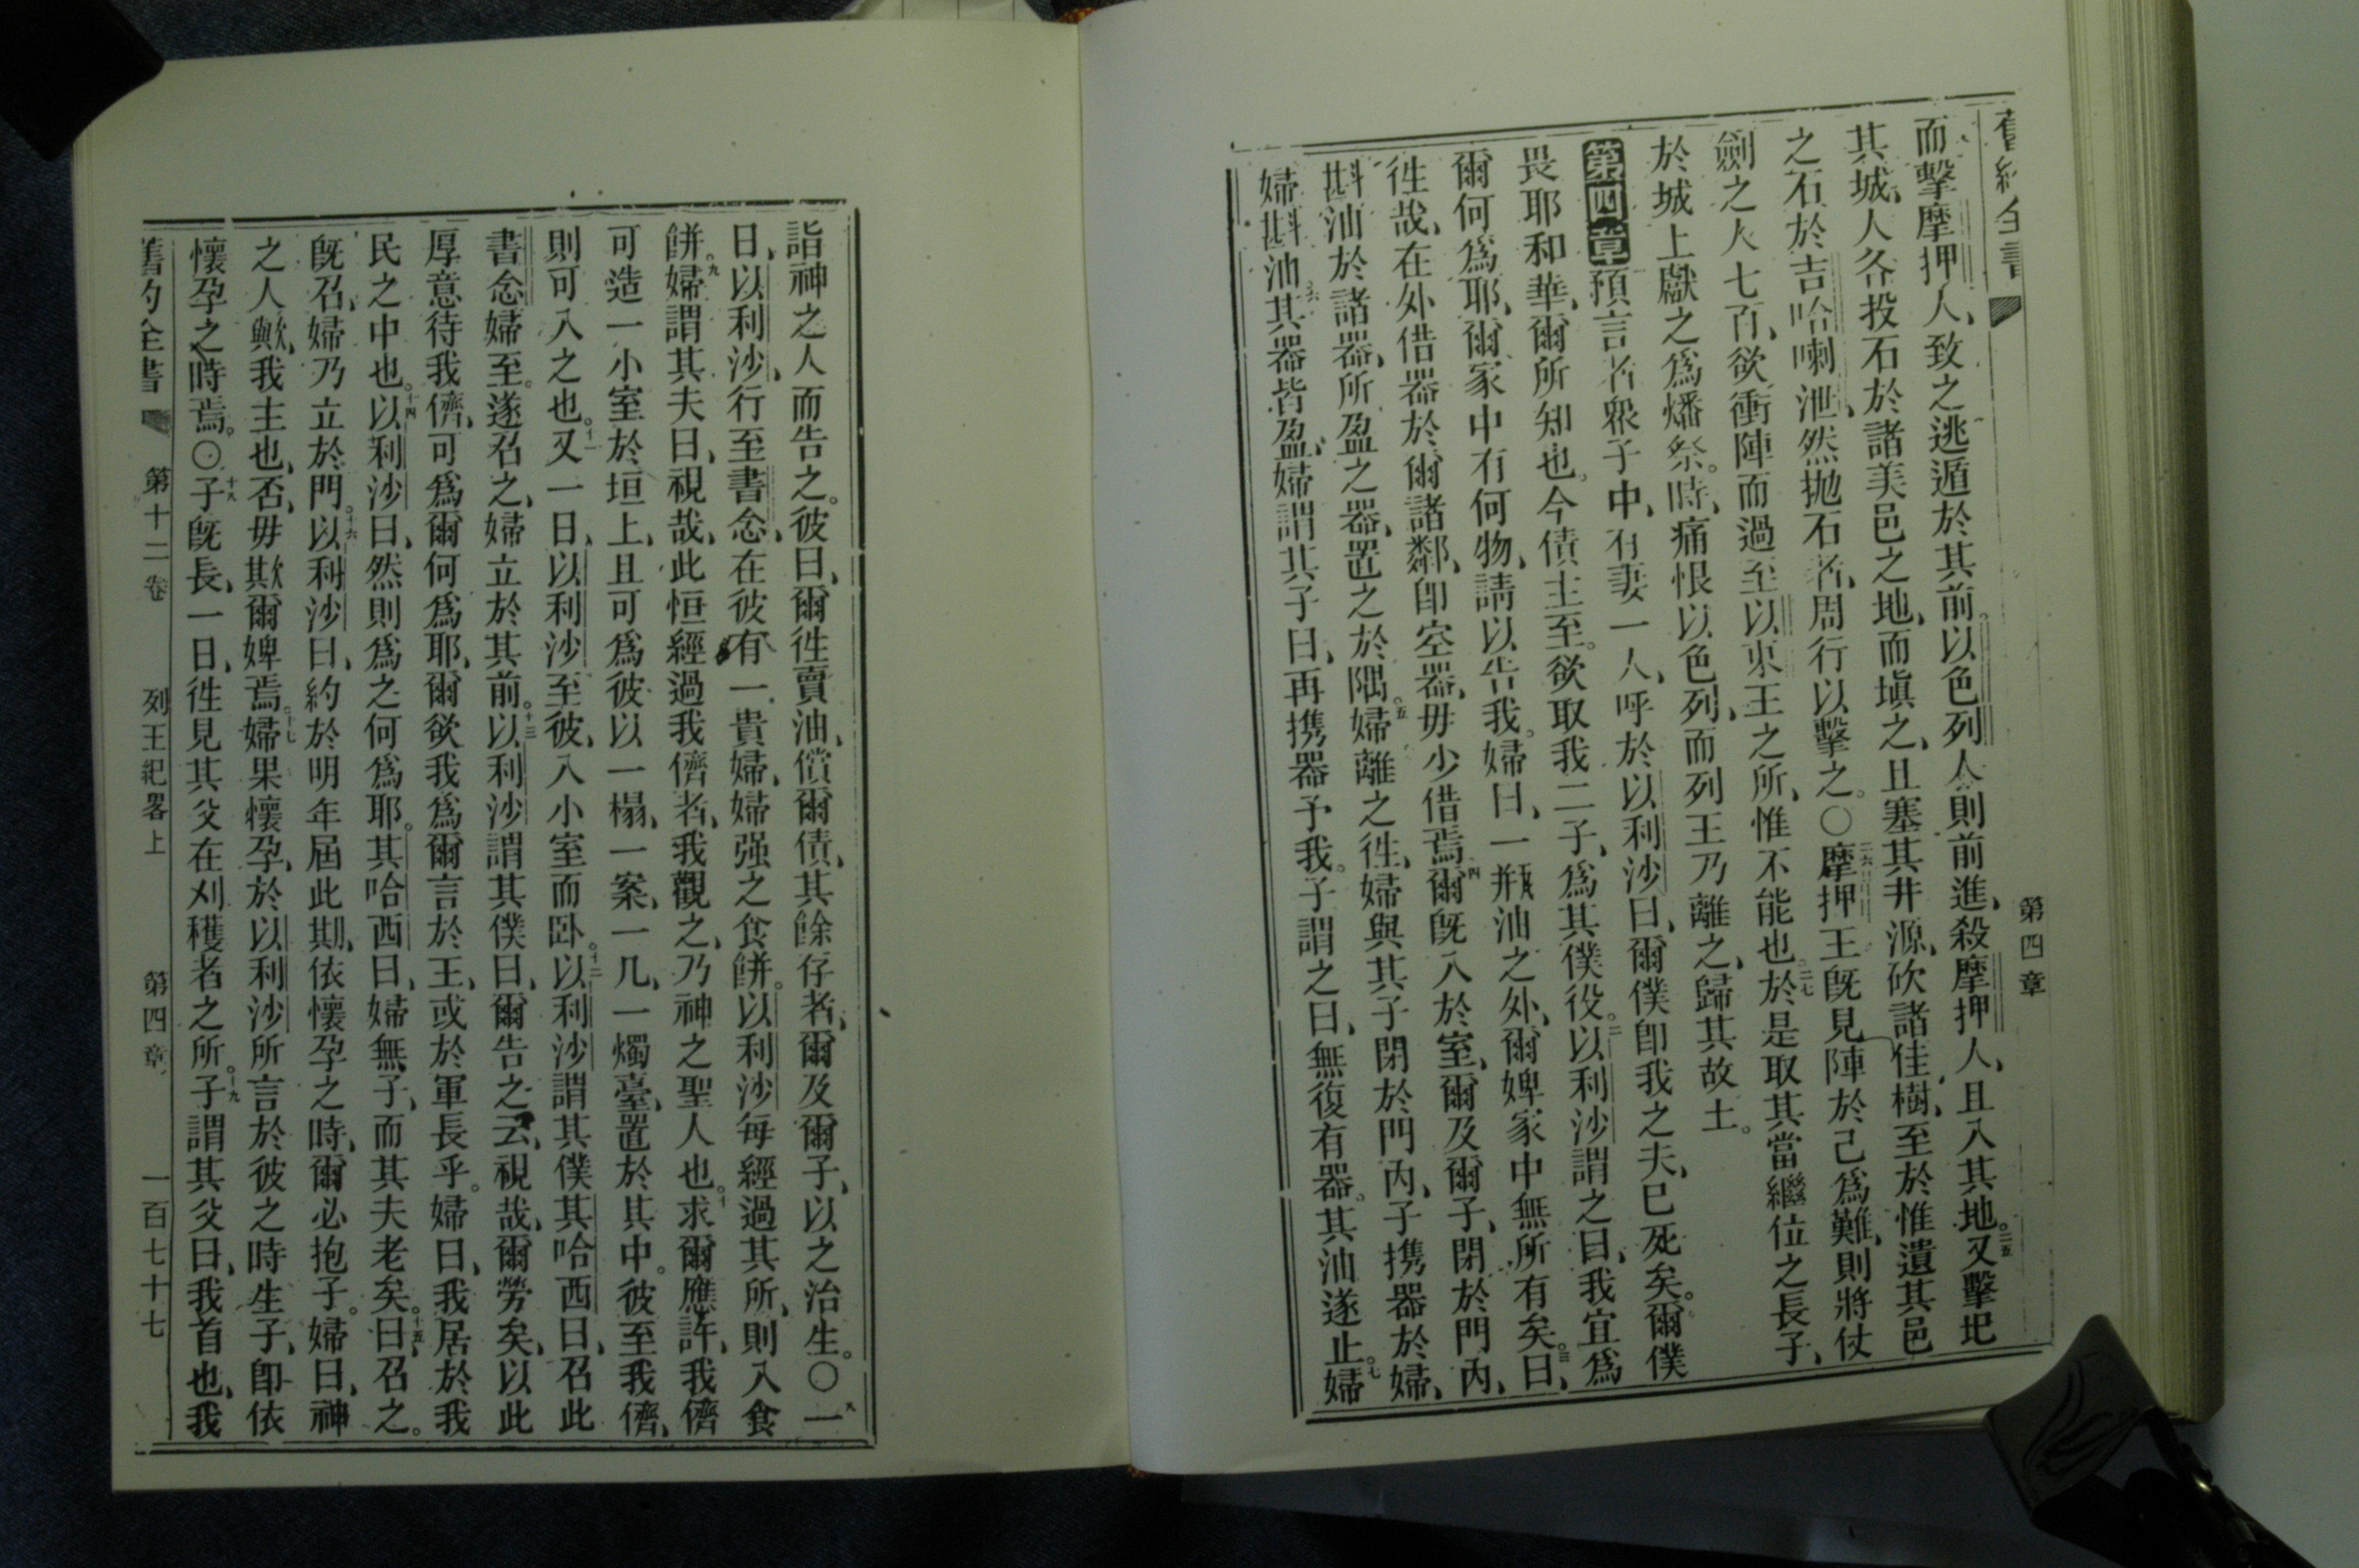 舊約全書
第四章
而擊摩押人、致之逃遁於其前。以色列人則前進、殺摩押人、且入其地。二五又擊圯
其城、人各投石於諸美邑之地、而塡之、且塞其井源、砍諸佳樹、至於惟遺其邑
之石於吉哈喇泄、然拋石者、周行以擊之。〇二六摩押王旣見陣於己爲難、則將仗
劍之人七百、欲衝陣而過至以東王之所、惟不能也。二七於是取其當繼位之長子、
於城上獻之爲燔祭。時、痛恨以色列、而列王乃離之、歸其故土。
第四章預言者衆子中、有妻一人、呼於以利沙曰、爾僕卽我之夫、已死矣。爾僕
畏耶和華、爾所知也。今債主至。欲取我二子、爲其僕役。二以利沙謂之曰、我宜爲
爾何爲耶、爾家中有何物、請以告我。婦曰、一瓶油之外、爾婢家中無所有矣。三曰、
徃哉、在外借器於爾諸鄰、卽空器、毋少借焉。四爾旣入於室、爾及爾子、閉於門內、
斟油於諸器、所盈之器、置之於隅。五婦離之徃、婦與其子閉於門內、子携器於婦、
婦斟油。六其器皆盈、婦謂其子曰、再携器予我。子謂之曰、無復有器。其油遂止。七婦
詣神之人而告之。彼曰、爾徃賣油、償爾債、其餘存者、爾及爾子、以之治生。〇八一
日、以利沙、行至書念、在彼有一貴婦、婦强之食餅。以利沙每經過其所、則入食
餅。九婦謂其夫曰、視哉、此恒經過我儕者、我觀之、乃神之聖人也。十求爾應許、我儕
可造一小室於垣上、且可爲彼以一榻、一案、一几、一燭臺、置於其中。彼至我儕、
則可入之也。十一又一日、以利沙至彼、入小室而卧。十二以利沙謂其僕其哈西曰、召此
書念婦至。遂召之、婦立於其前。十三以利沙謂其僕曰、爾告之云、視哉、爾勞矣、以此
厚意待我儕、可爲爾何爲耶、爾欲我爲爾言於王、或於軍長乎。婦曰、我居於我
民之中也。十四以利沙曰、然則爲之何爲耶。其哈西曰、婦無子、而其夫老矣。十五曰、召之。
旣召、婦乃立於門。十六以利沙曰、約於明年屆此期、依懷孕之時、爾必抱子。婦曰、神
之人歟、我主也、否、毋欺爾婢焉。十七婦果懷孕、於以利沙所言於彼之時生子、卽依
懷孕之時焉。〇十八子旣長、一日、徃見其父在刈穫者之所。十九子謂其父曰、我首也、我
舊約全書 第十二卷 列王紀畧上 第四章 一百七十七